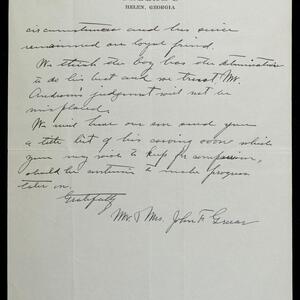 HELEN, GEORGIA
circumstances and has since
remained our loyal friend.
We think the boy has the determination
to do his best and we trust Mr.
judgment will not be
misplaced.
We will have our son send you
a little bit of his carving soon which
you may wish to keep for comparison,
should he continue to make progress
later on.
Gratefully
Mr. & Mrs. John F.